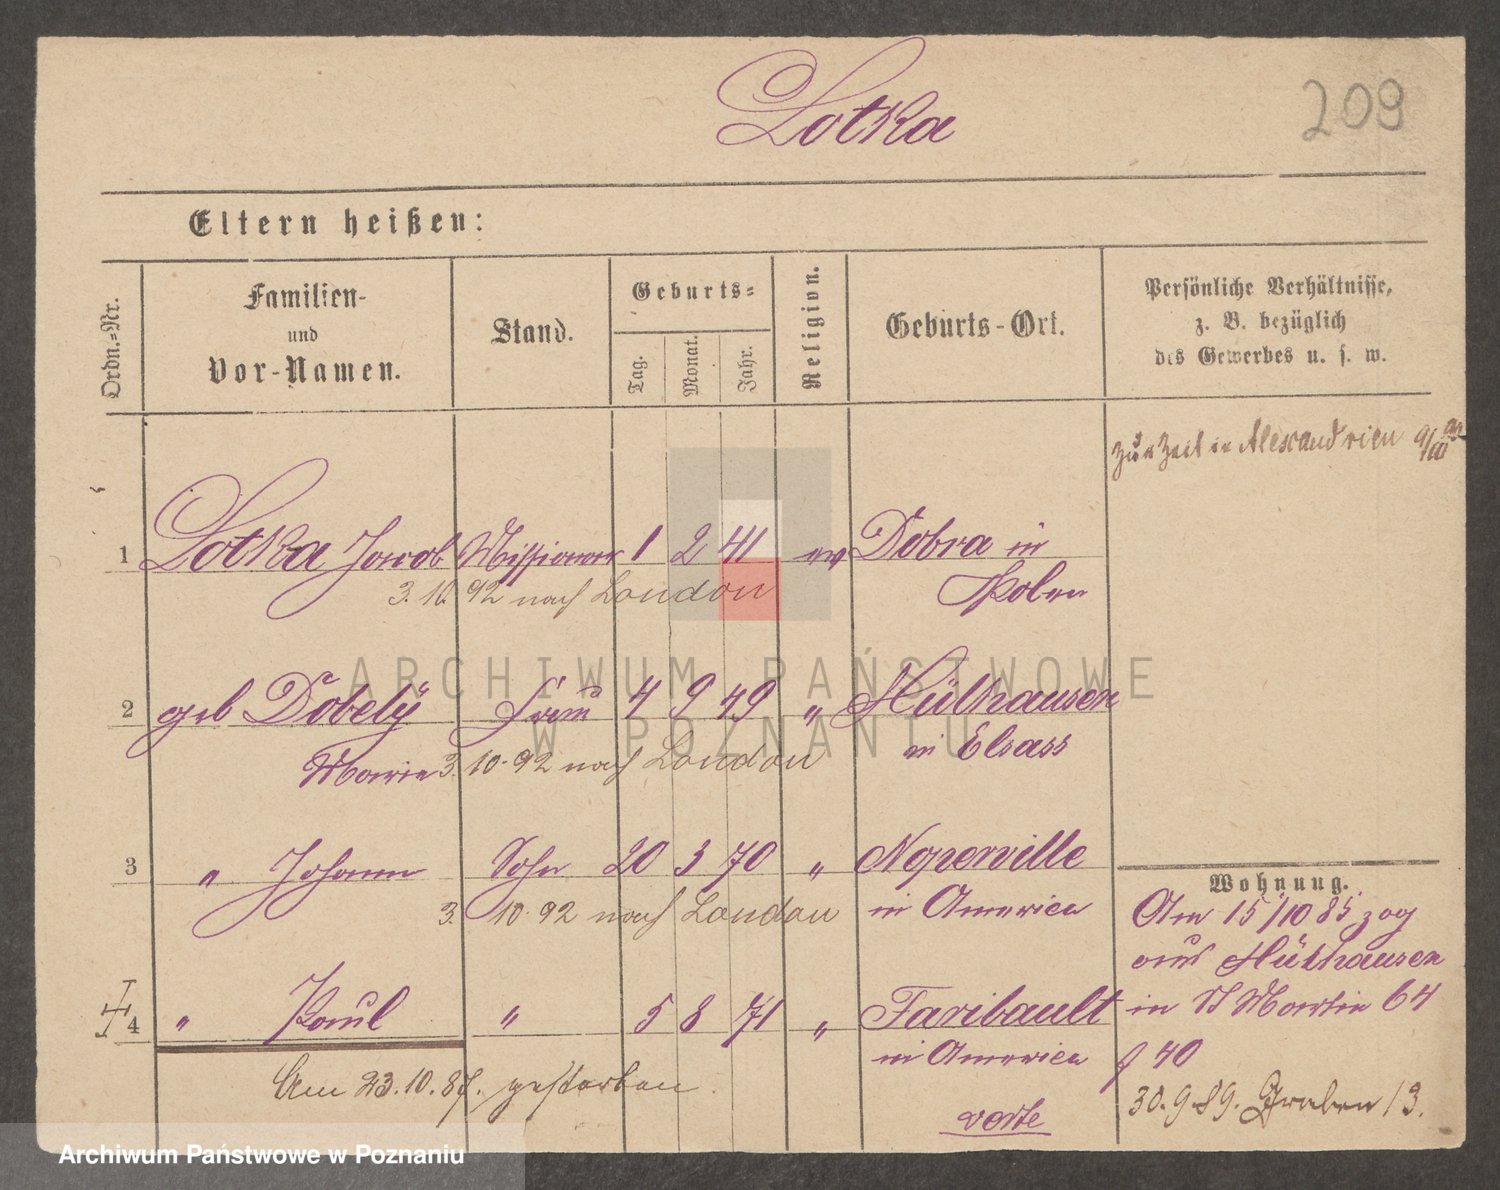 Lotka
209
Eltern heißen:
Ordn.-Nr.
Familien- und Vor-Namen.
Stand.
Geburts-
Tag.
Monat.
Jahr.
Religion.
Geburts-Ort.
Persönliche Verhältnisse,
z. B. bezüglich
des Gewerbes u. s. w.
zur Zeit in Alexandrien
1 Lotka Jacob Missionar 1 2 41 ev Dobra in
3. 10. 92 nach London
Polen
ARCHIWUM PAŃSTWOWE
W POZNANIU
2 geb Dobely Frau 4 9 49 " Mülhausen
Marie 3. 10. 92 nach London in Elsass
3 " Johann Sohn 20 3 70 " Naperville
3. 10. 92 nach London in America
Wohnung.
Am 15/10 85 zog
aus Mülhausen
4 " Paul " 5 8 71 " Faribault
in St Martin 64
in America
40
Am 23.10.87. gestorben
30. 9 89. Graben 13.
verte
Archiwum Państwowe w Poznaniu